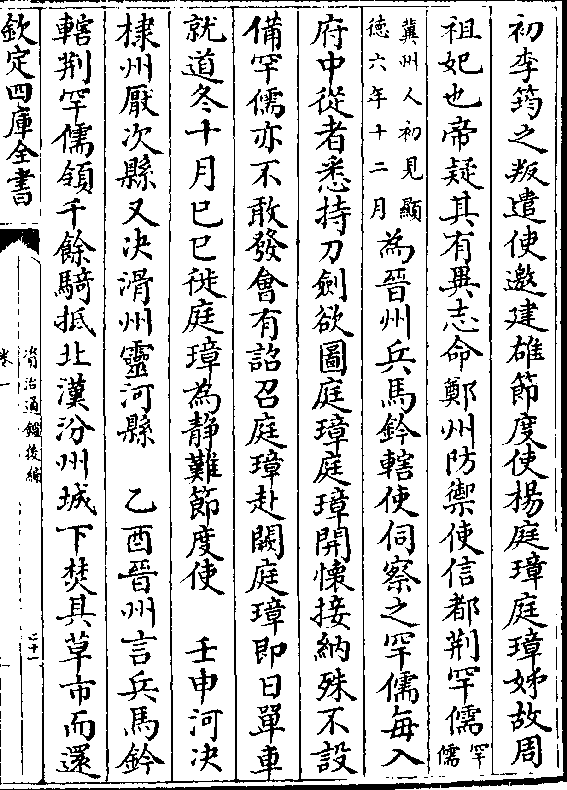 初李筠之叛遣使邀建雄節度使楊庭璋庭璋姊故周
祖妃也帝疑其有異志命鄭州防禦使信都荆罕儒罕儒
冀州人初見顯德六年十二月為晉州兵馬鈐轄使伺察之罕儒每入
府中從者悉持刀劍欲圖庭璋庭璋開懷接納殊不設
備罕儒亦不敢發會有詔召庭璋赴闕庭璋即日單車
就道冬十月巳巳徙庭璋為静難節度使　壬申河决
棣州厭次縣又决滑州靈河縣　乙酉晉州言兵馬鈐
轄荆罕儒領千餘騎抵北漢汾州城下焚其草市而還
欽定四庫全書
資治通鑑後編
卷一
二十一